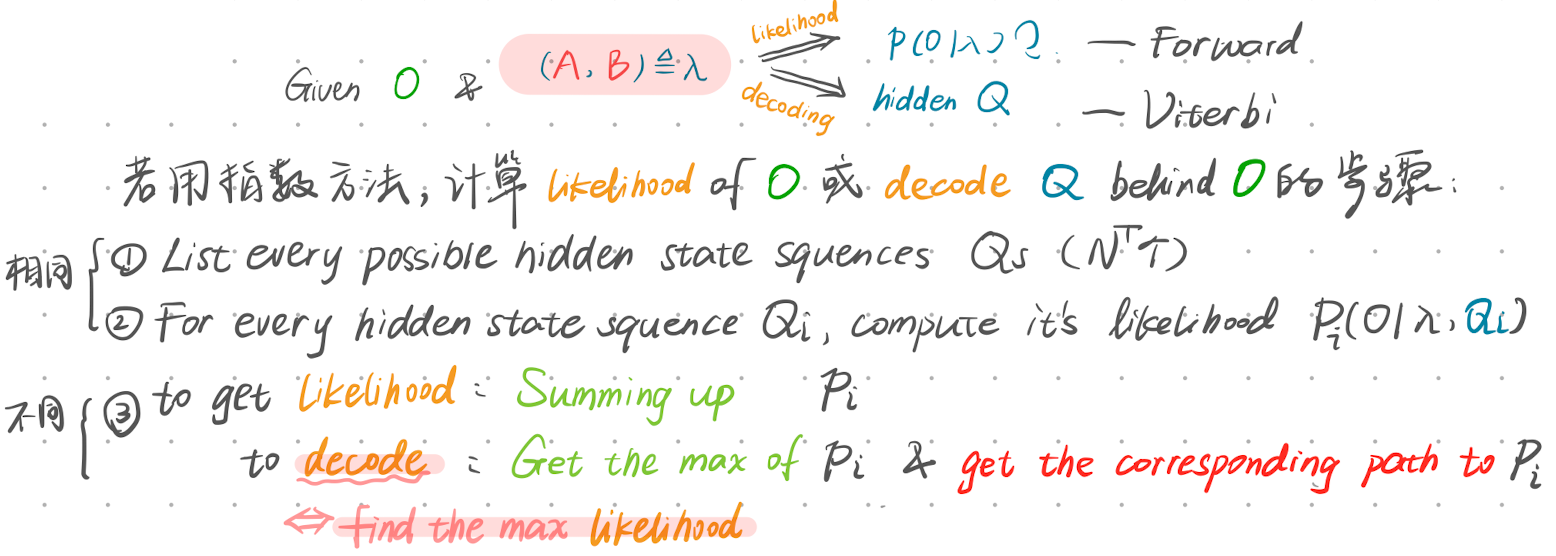 Given O & (A, B) ≜ λ likelihood P(O|λ)? — Forward
decoding hidden Q — Viterbi
若用指数方法, 计算 likelihood of O 或 decode Q behind O 的步骤:
相同 ① List every possible hidden state squences Qs (N^T个)
② For every hidden state squence Qi, compute it's likelihood Pi(O|λ, Qi)
不同 ③ to get likelihood: Summing up Pi
to decode: Get the max of Pi & get the corresponding path to Pi
⇔ find the max likelihood